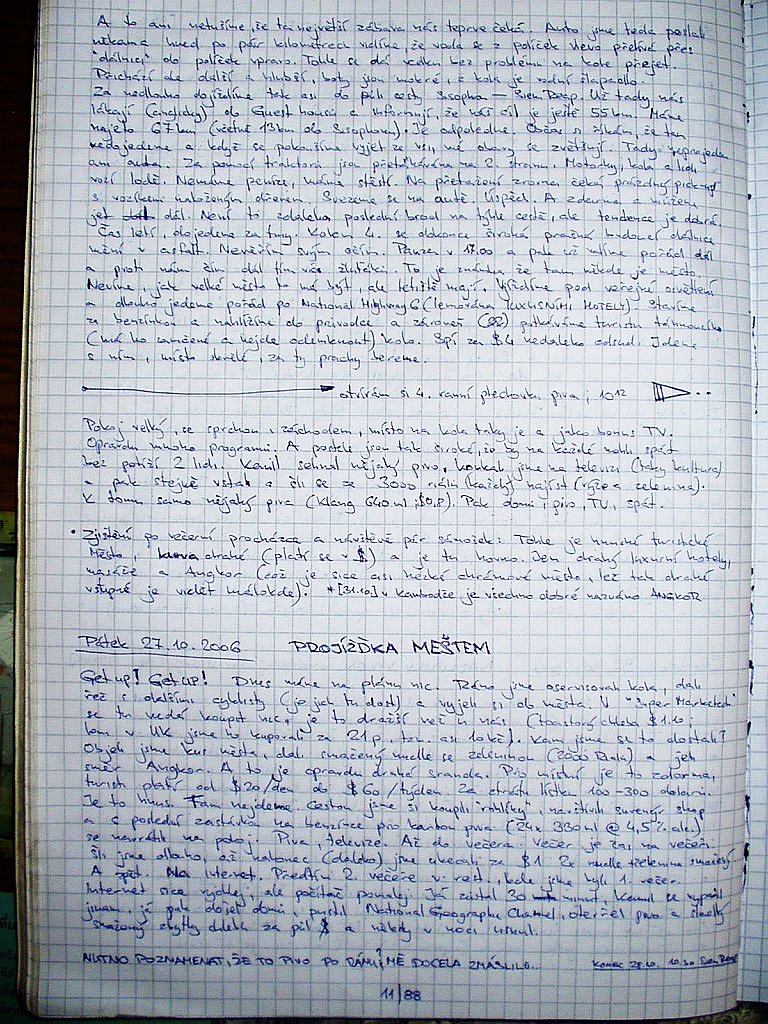 A to ani netušíme, že ta největší zábava nás teprve čeká. Auto jsme teda poslali
někama hned po pár kilometrech vidíme, že voda se z políček vlevo přelívá přes
"dálnici" do políček vpravo. Tohle se dá vedku bez problému na kole přejet.
Přichází ale další a hlubší, boty jsou mokré, z kola je vodní šlapadlo.
Za nedlouho dojíždíme tak asi do půli cesty Sisophon — Siem Reap. Už tady nás
lákají (anglicky) do Guest housů a informují, že náš cíl je ještě 55 km. Máme
najeto 67 km (včetně 13 km do Sisophonu). Je odpoledne. Občas si říkám, že tam
nedojedeme a když se pokoušíme vyjet ze vsi, mé obavy se zvětšují. Tady neprojedou
ani auta. Za pomocí traktorů jsou přetahována na 2. stranu. Motorky, kola a lidi
vozí lodě. Nemáme peníze, máme štěstí. Na přetažení zrovna čeká prázdný pickup
s vozíkem naloženým dřevem. Svezeme se na autě. Úspěch. A zdarma a můžeme
jet dál. Není to zdaleka poslední brod na týhle cestě, ale tendence je dobrá.
Čas letí, dojedeme za tmy. Kolem 4. se dokonce široká prašná budoucí dálnice
mění v asfalt. Nevěřím svým očím. Pauza v 17.00 a pak už valíme pořád dál
a proti nám čím dál tím víc žluťáků. To je známka, že tam někde je město.
Nevíme, jak velké město to má být, ale letiště mají. Vjíždíme pod veřejné osvětlení
a dlouho jedeme pořád po National Highway 6 (lemována LUXUSNÍMI HOTELY). Stavíme
za benzínkou a nahlížíme do průvodce a zároveň potkáváme turistu táhnoucího
(má ho zamčené a nejde odemknout) kolo. Spí za $4 nedaleko odsud. Jdeme
s ním, místo skvělé, za ty prachy bereme.
otvírám si 4. ranní plechovku piva, 10¹²
Pokoj velký, se sprchou i záchodem, místo na kola taky je a jako bonus TV.
Opravdu mnoho programů. A postele jsou tak široké, že by na každé mohli spát
bez potíží 2 lidi. Kamil sehnal nějaký pivo, koukal jsme na televizi (taky kultura)
a pak stejně vstali a šli se za 3000 rielů (každý) najíst (rýže a zelenina).
K tomu samo nějaký piva (Klang 640 ml, $0,8). Pak domů, pivo, TV, spát.
• Zjištění po večerní procházce a návštěvě pár samošek: Tohle je humusní turistické
město, kurva drahé (platí se v $) a je tu hovno. Jen drahý luxusní hotely,
masáže a Angkor (což je sice asi hezké chrámové město, leč tak drahé
vstupné je vidět málokde). *[31.10.] V Kambodže je všechno dobré nazváno ANGKOR
Pátek 27.10.2006 PROJÍŽĎKA MĚSTEM
Get up! Get up! Dnes máme na plánu nic. Ráno jsme oservisovali kola, dali
řeč s dalšími cyklisty (je jich tu dost) a vyjeli si do města. V "Super Marketech"
se tu nedá koupit nic, je to dražší než u nás (toastový chleba $1.10;
loni v UK jsme ho kupovali za 21p, tzn. asi 10kč). Kam jsme se to dostali?
Objeli jsme kus města, dali smažený nudle se zeleninou (2000 Riala) a jeli
směr Angkor. A to je opravdu drahá sranda. Pro místní je to zdarma,
turisti platí od $20/den do $60/týden. Za ztrátu lístku 100–300 dolarů.
Je to hnus. Tam nejdeme. Cestou jsme si koupili "rohlíky", navštívili suvenýr shop
a s poslední zastávkou na benzínce pro karton piva (24x 330 ml @ 4,5% alc.)
se navrátili na pokoj. Piva, televize. Až do večera. Večer je čas na večeři.
Šli jsme dlouho, až nakonec (daleko) jsme ukecali za $1 2x nudle zeleninu smažený.
A zpět. Na Internet. Předtím 2. večeře v rest., kde jsme byli 1. večer.
Internet sice rychlej, ale počítač pomalej. Já zůstal 30 minut, Kamil se vypravil
jinam, já pak došel domů, pustil National Geographic Channel, otevřel pivo a
smažený zbytky chleba za půl $ a někdy v noci usnul.
NUTNO POZNAMENAT, ŽE TO PIVO PO RÁNU MĚ DOCELA ZMÁSLILO... KONEC 28.10. 10.30 Siem Reap
11/88